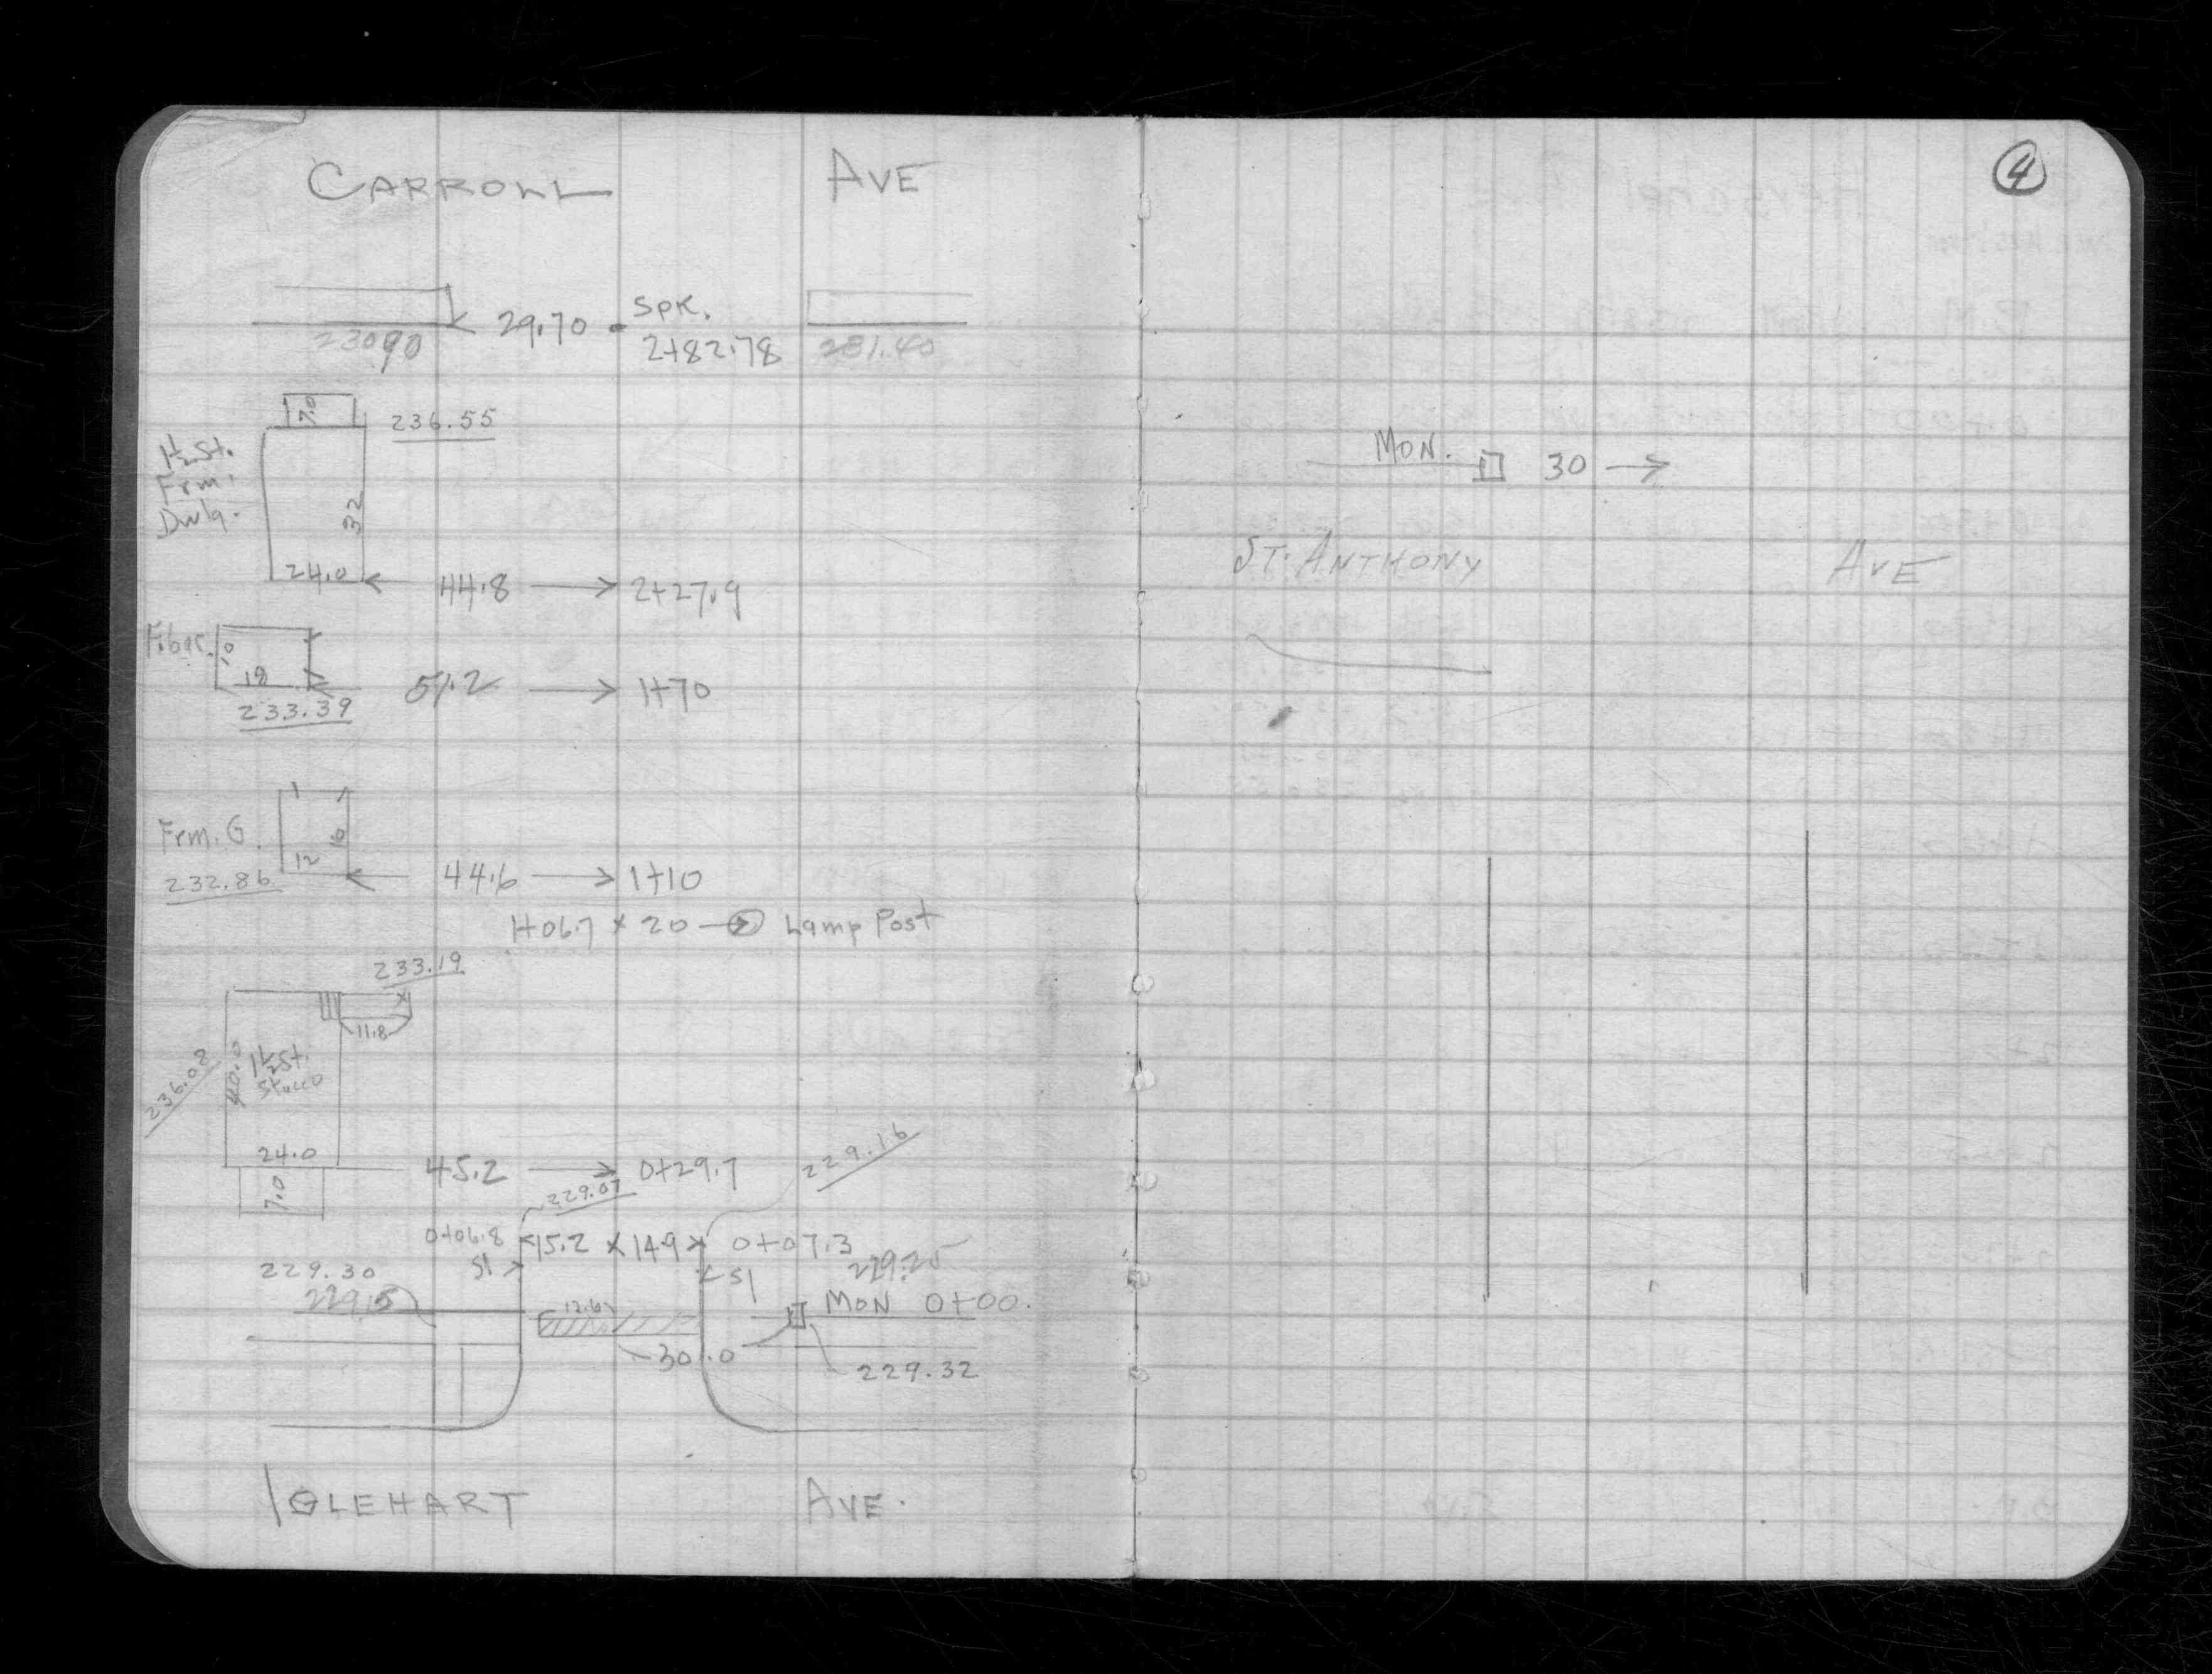 CARROLL AVE
29.70 SPK.
230.90 2+82.78 231.40
7.0 236.55
1½ St.
Frm.
Dwlg.
32
24.0 44.8 2+27.9
10
18 51.2 1+70
233.39
Frm. G. 16
12
232.86 44.6 1+10
1+06.7 x 20 Lamp Post
233.19
11.8
236.08 40.0 1½ St.
Stucco
24.0 45.2 0+29.7 229.16
7.0 229.07
0+06.8 15.2 x 14.9 0+07.3
229.30 51 51 229.25
229.15 12.6 MON 0+00.
30.0 229.32
IGLEHART AVE.
4
MON. 30
ST. ANTHONY AVE